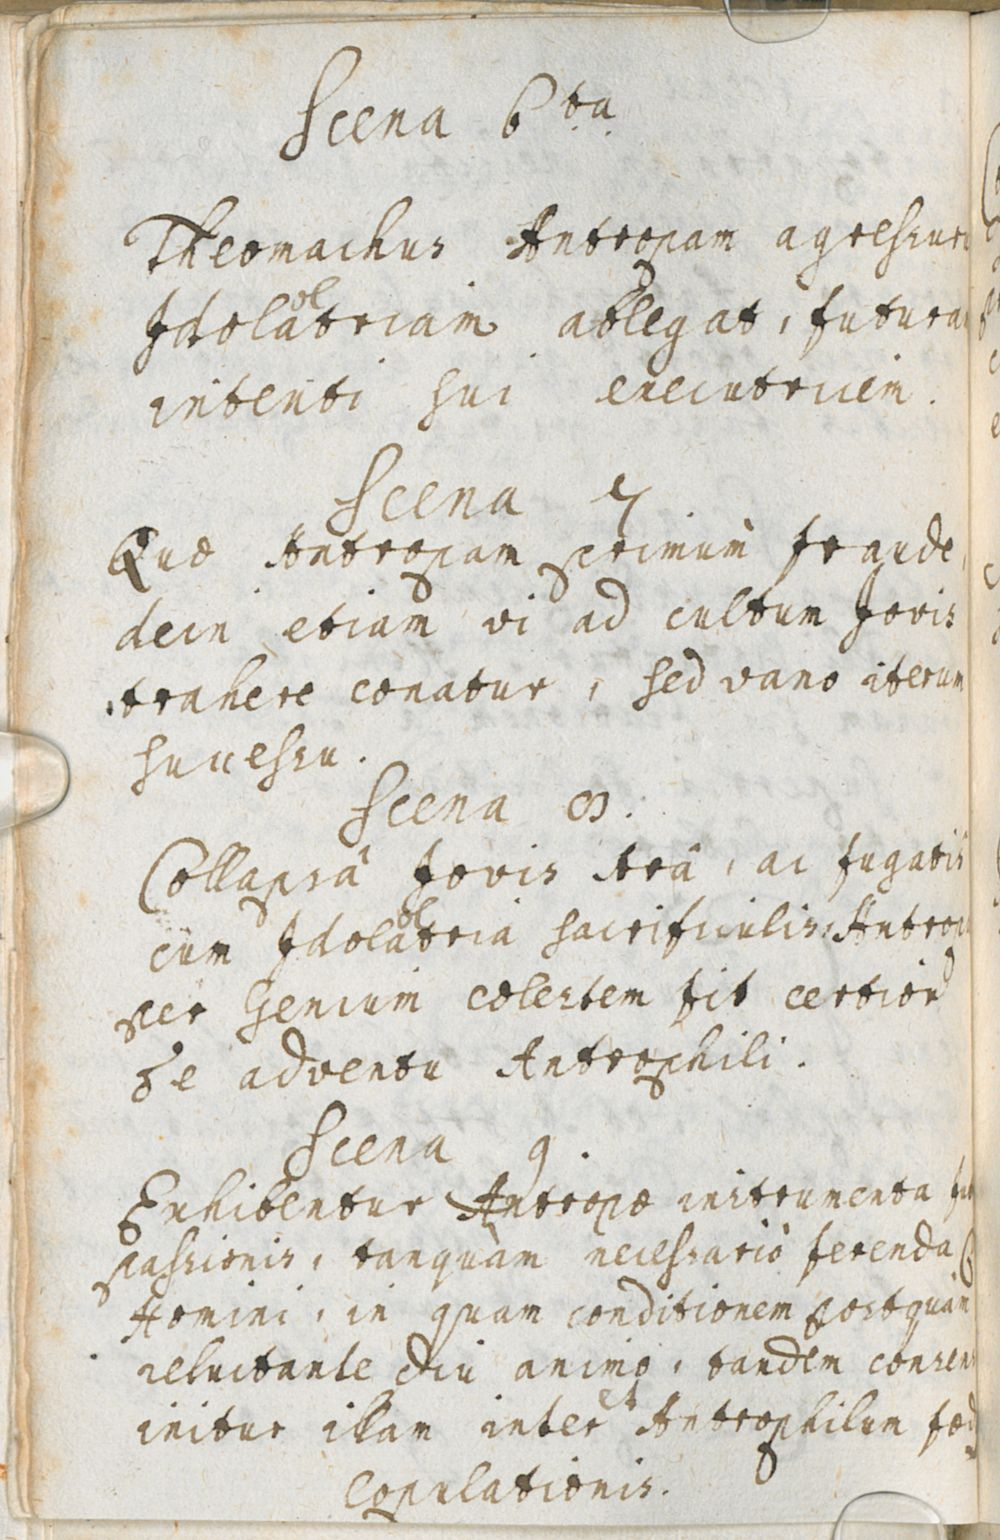 Scena 6ta
Theomachus Antropam agressurus
Idololatriam ablegat, futuram
intenti sui executricem.
Scena 7
Quæ Antropam primùm fraude,
dein etiam vi ad cultum Jovis
trahere conatur, sed vano iterum
successu.
Scena 8.
Collapsâ Jovis Arâ, ac fugatis
cum Idololatria sacrificulis, Antropa
per Genium cœlestem fit certior
de adventu Antrophili.
Scena 9.
Exhibentur Antropæ instrumenta
passionis, tanquàm necessariò ferenda
Homini, in quam conditionem postquam
reluctante diu animo, tandem
initur illam inter et Antrophilum
Copulationis.